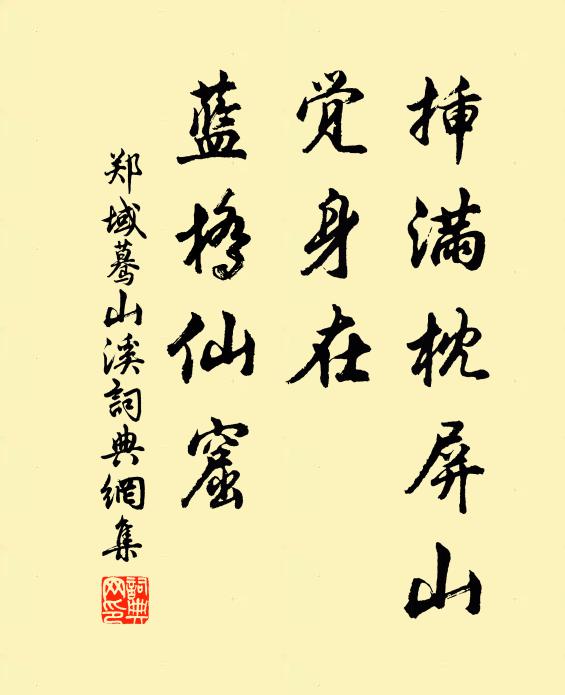 挿满枕屏山
觉身在
蓝桥仙窟
郑域蓦山溪詞典網集
詞典网印